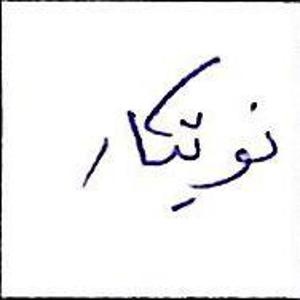 نوتیکار